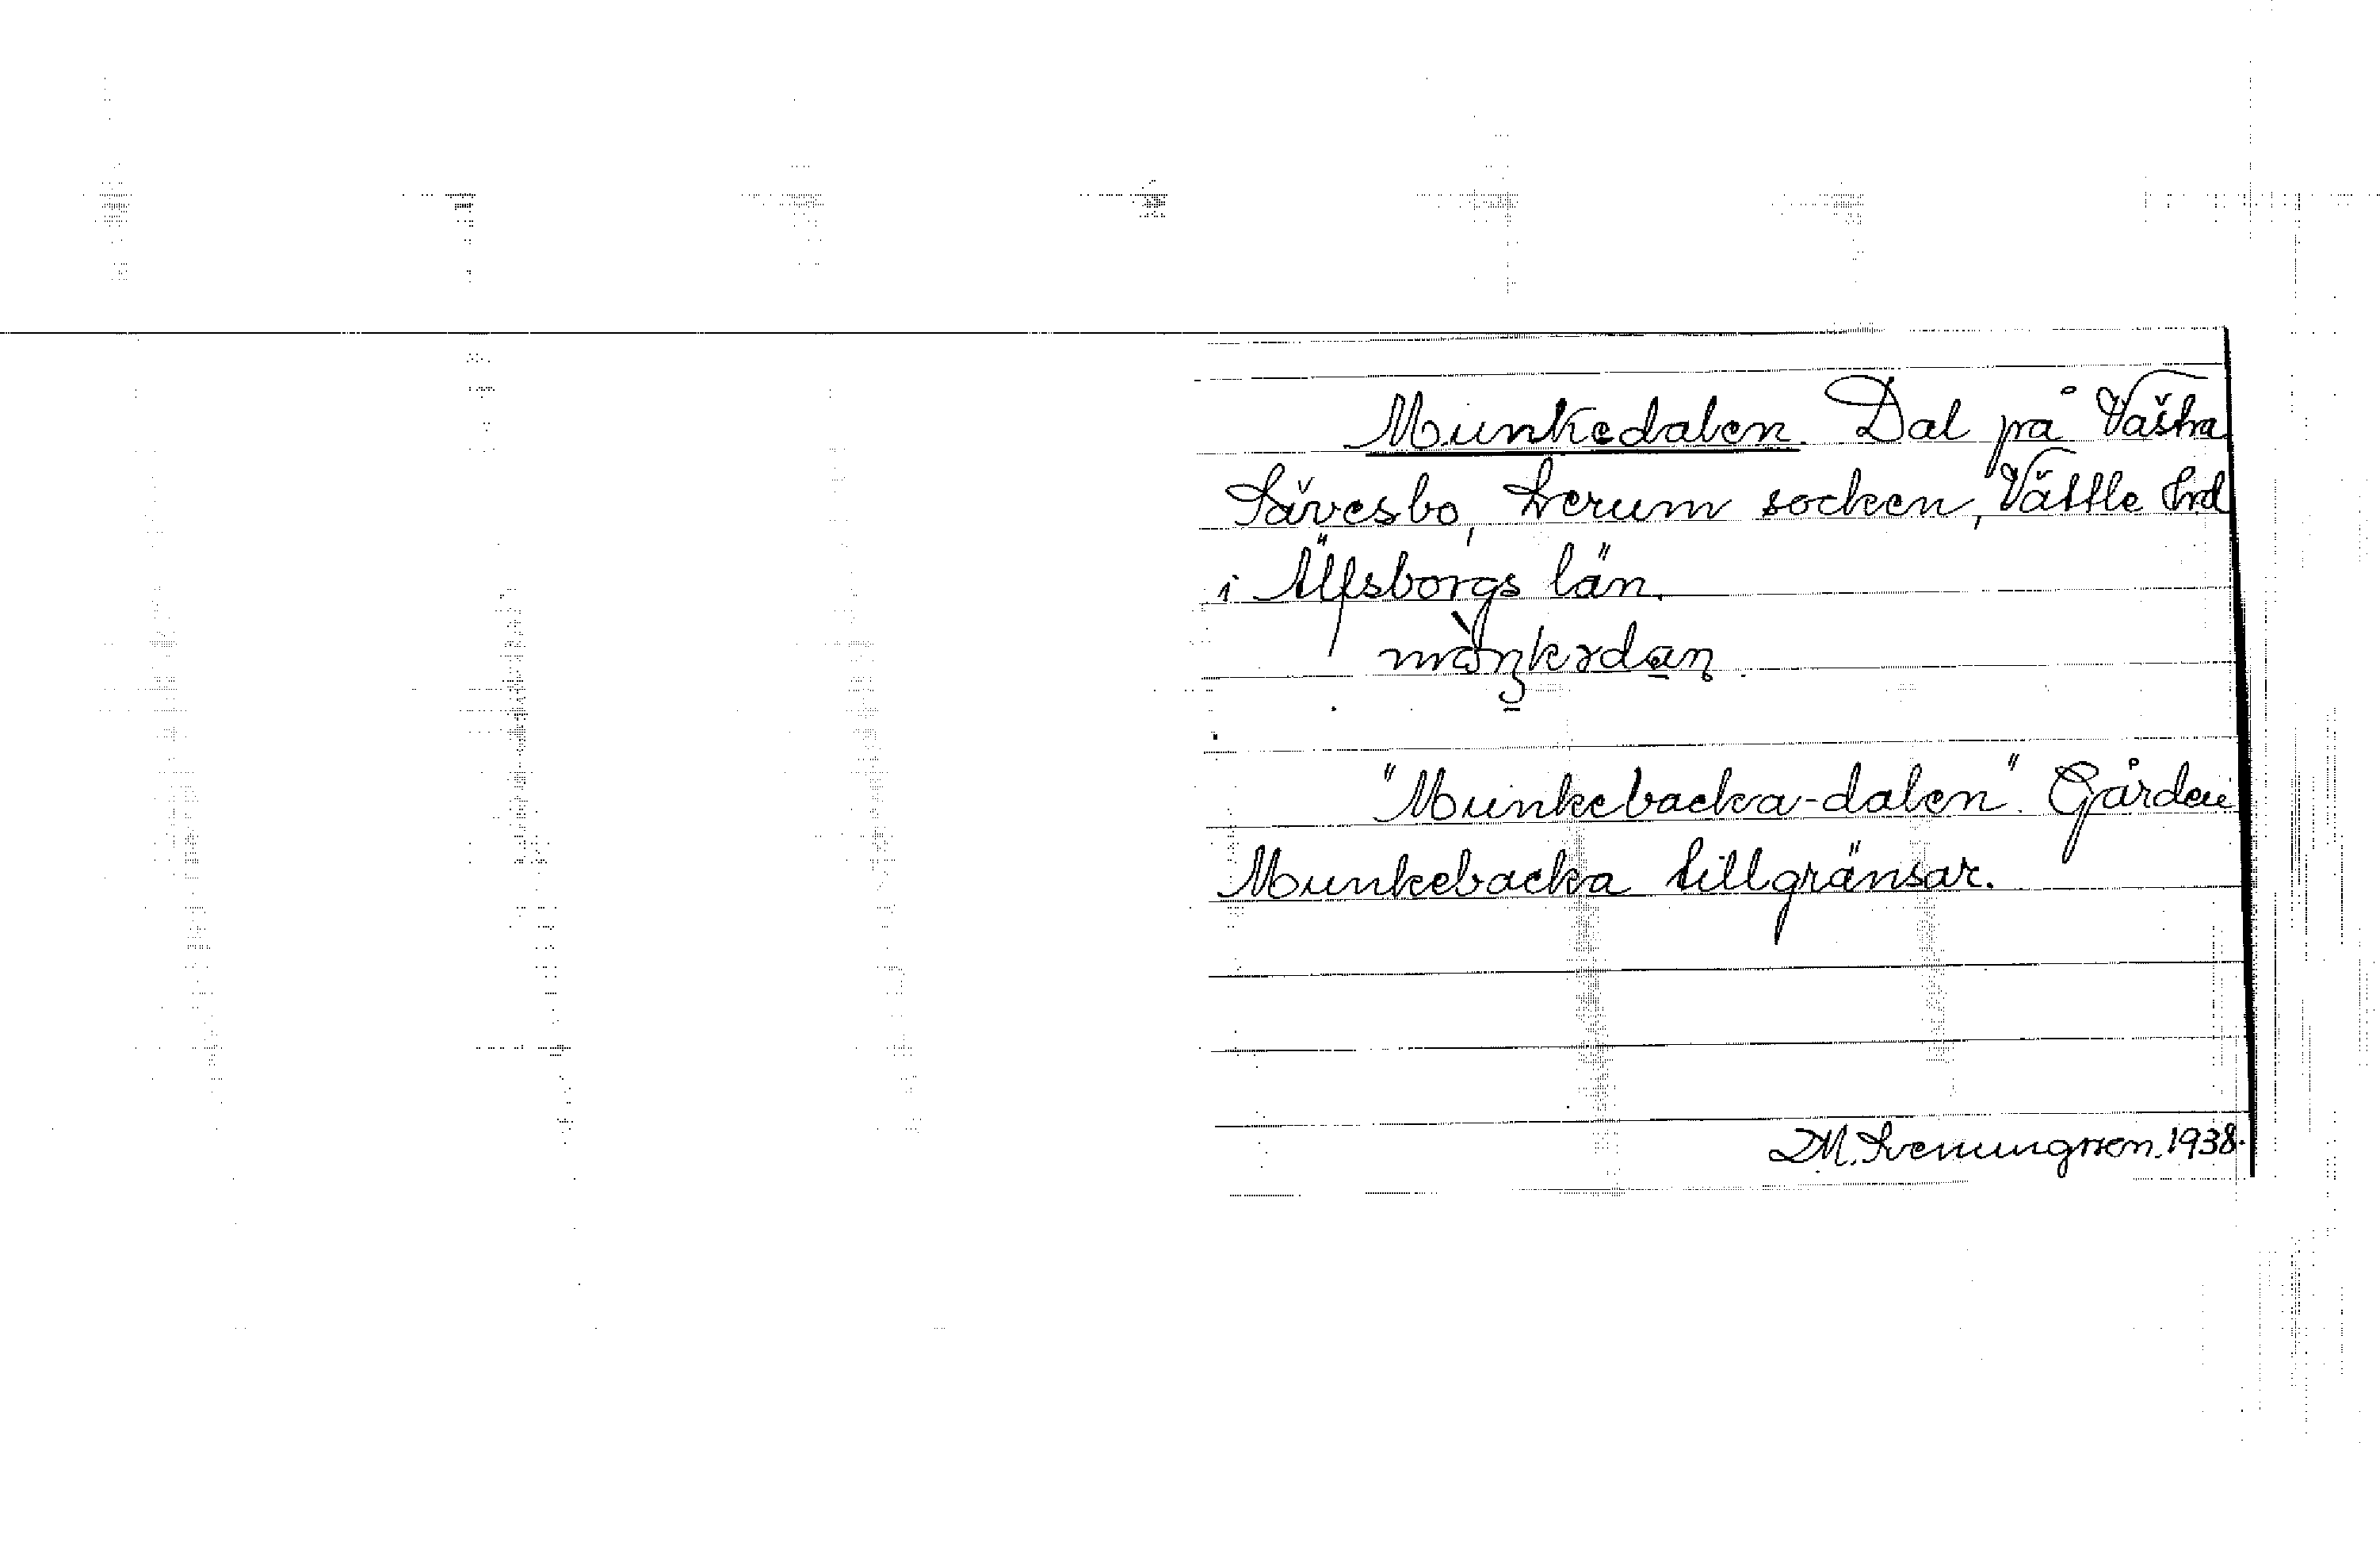 Munkedalen. Dal på Västra
Sävesbo, Lerum socken, Vättle hrd
i Älfsborgs län.
"Munkebacka-dalen". Gården
Munkebacka tillgränsar.
D.M. Svenungsson. 1938.